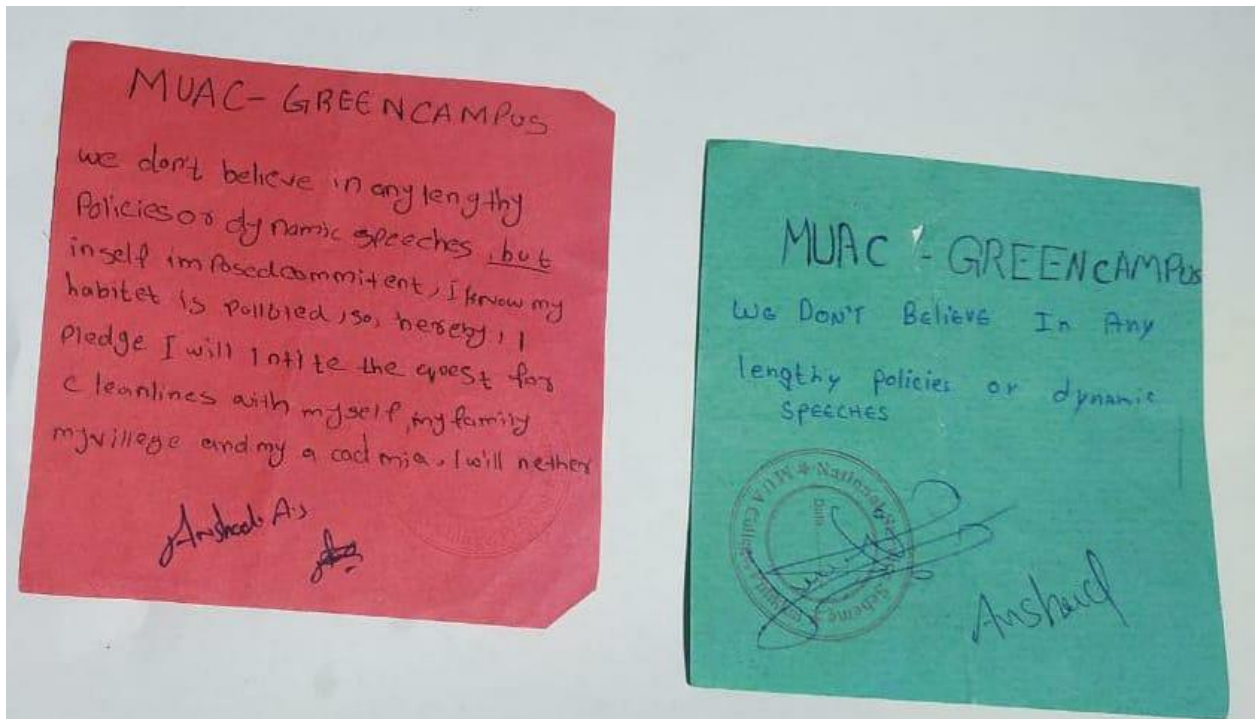 MUAC- GREENCAMPUS
we don't believe in any lengthy
Policies or dynamic speeches, but
inself imposed commitent, I know my
habitet is pollbted, so, hereby, I
Pledge I will intite the quest for
cleanlines with myself, my family
my villege and my acadmia. I will nether
Arshad A.s
MUAC - GREENCAMPUS
We DON'T BelieVe In Any
lengthy policies or dynamic
SPEECHES
MUA College
National
Scheme
Date
Arshad